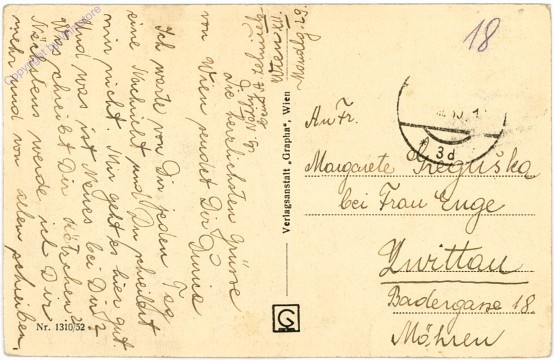 Die herzlichsten Grüsse
von Wien sendet Dir
Ich warte von Dir jeden Tag
eine Nachricht und Du schreibst
mir nicht. Mir geht es hier gut.
Und was ist Neues bei Dir?
Was schreibt Dir
Nächstens werde ich Dir
mehr und von allem schreiben.
Wien XII.
Nr. 1310/52
Verlagsanstalt „Grapha“, Wien
G
18
3d
An Fr.
Margarete
bei Frau Enge
Zwittau
Badergasse 18.
Mähren